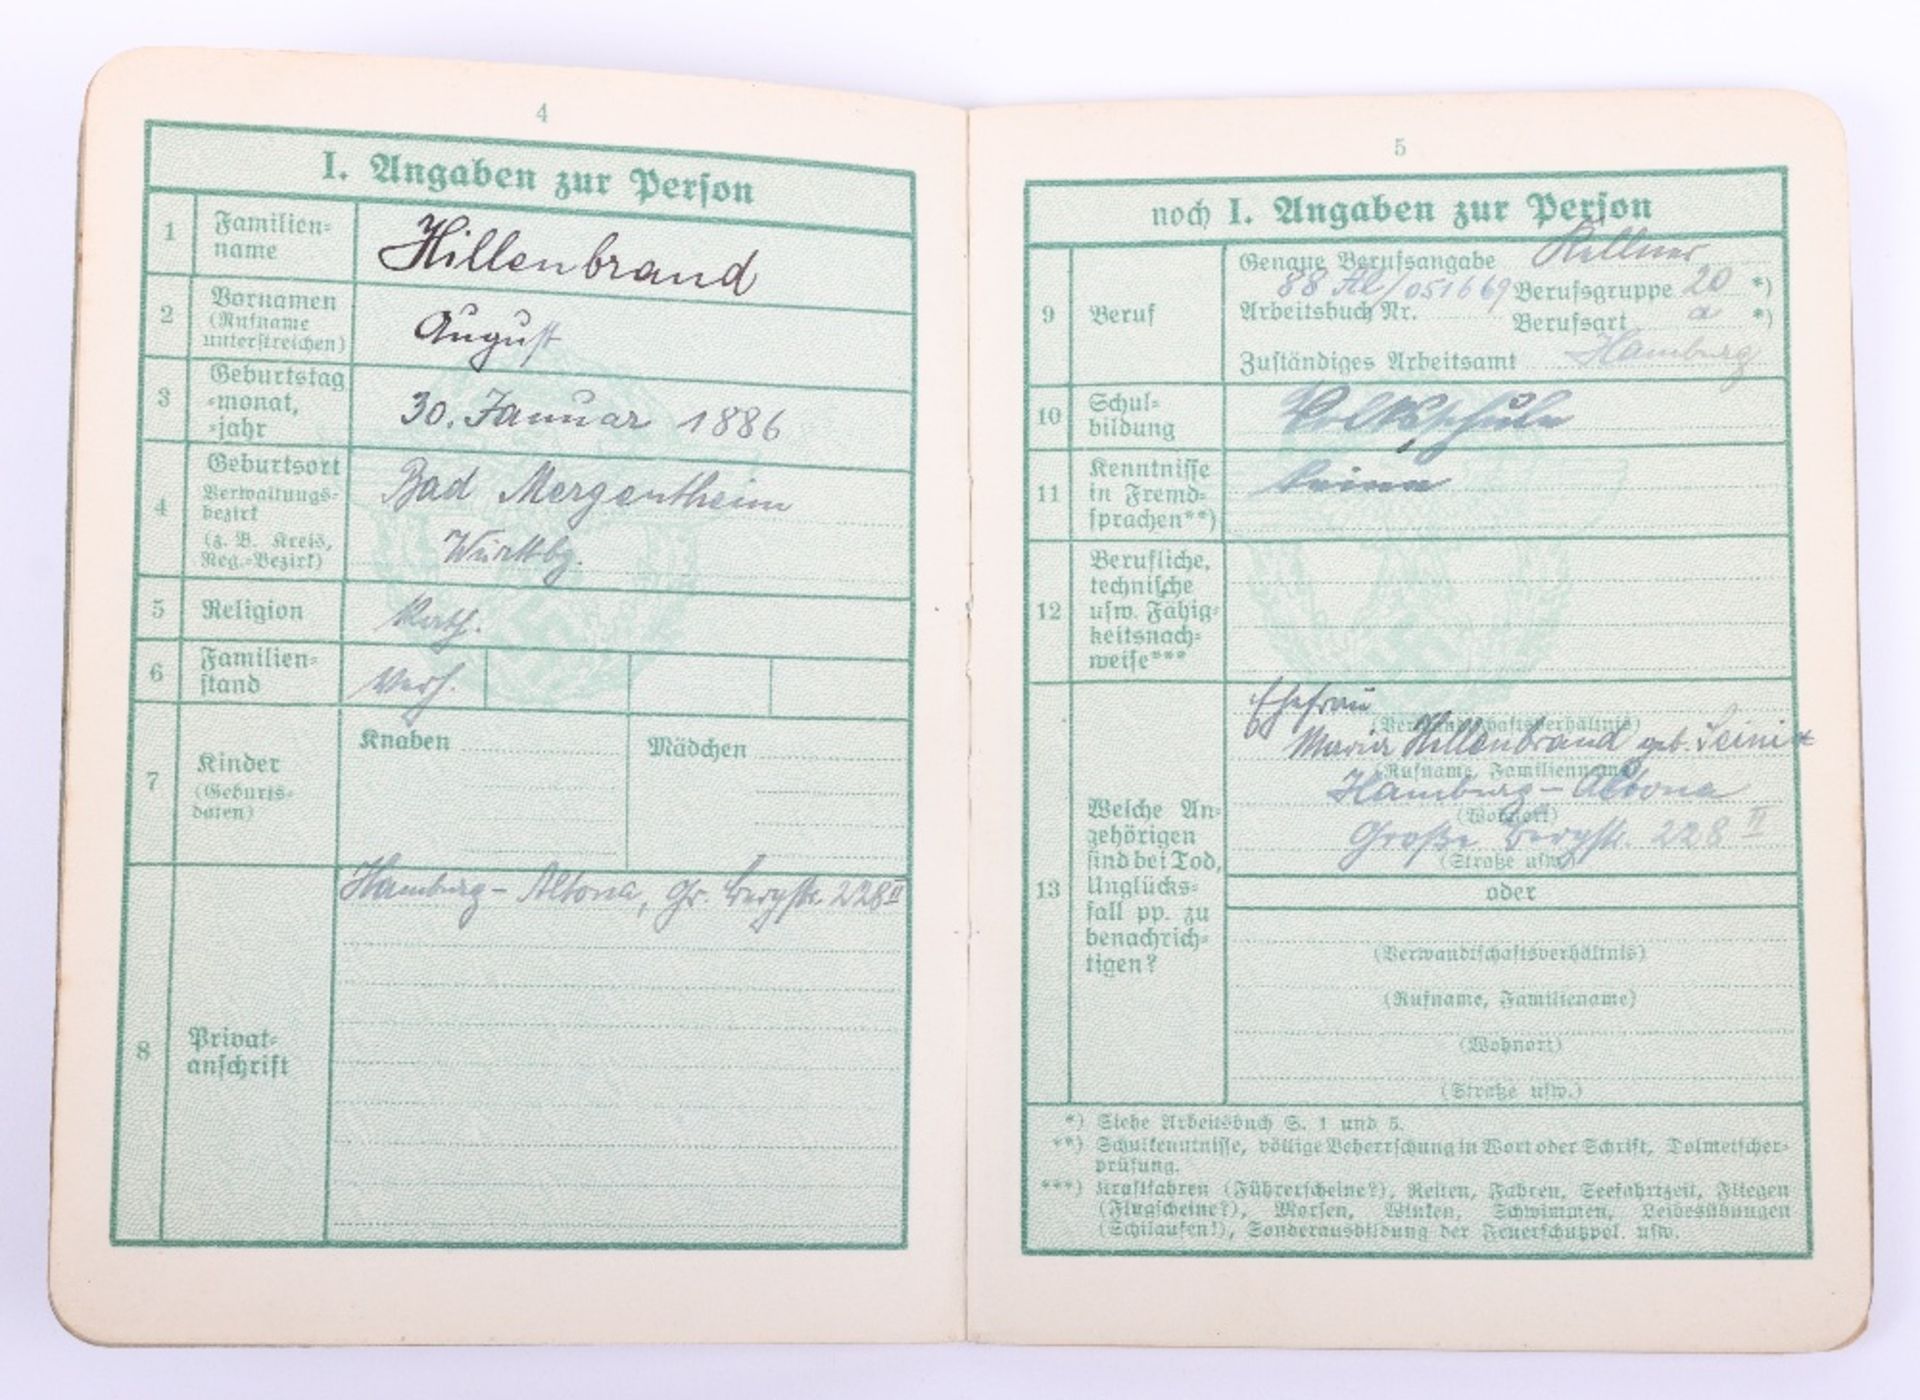 4
I. Angaben zur Person
1
Familien-
name
Hillenbrand
2
Vornamen
(Rufname
unterstreichen)
August
3
Geburtstag
-monat,
-jahr
30. Januar 1886
4
Geburtsort
Verwaltungs-
bezirk
(z. B. Kreis,
Reg.-Bezirk)
Bad Mergentheim
Württbg.
5
Religion
Kath.
6
Familien-
stand
Verh.
7
Kinder
(Geburts-
daten)
Knaben
Mädchen
8
Privat-
anschrift
Hamburg-Altona, Gr. Bergstr. 228 II
5
noch I. Angaben zur Person
9
Beruf
Genaue Berufsangabe Kellner
88 /051669 Berufsgruppe 20 *)
Arbeitsbuch Nr.
Berufsart a *)
Zuständiges Arbeitsamt Hamburg
10
Schul-
bildung
Volksschule
11
Kenntnisse
in Fremd-
sprachen**)
keine
12
Berufliche,
technische
usw. Fähig-
keitsnach-
weise***
13
Welche An-
gehörigen
sind bei Tod,
Unglücks-
fall pp. zu
benachrich-
tigen?
Ehefrau
(Verwandtschaftsverhältnis)
Maria Hillenbrand geb.
(Rufname, Familienname)
Hamburg-Altona
(Wohnort)
Große Bergstr. 228 II
(Straße usw.)
oder
(Verwandtschaftsverhältnis)
(Rufname, Familienname)
(Wohnort)
(Straße usw.)
*) Siehe Arbeitsbuch S. 1 und 5.
**) Schulkenntnisse, völlige Beherrschung in Wort oder Schrift, Dolmetscher-
prüfung.
***) Kraftfahren (Führerscheine?), Reiten, Fahren, Seefahrtzeit, Fliegen
(Flugscheine?), Morsen, Winken, Schwimmen, Leibesübungen
(Schilaufen!), Sonderausbildung der Feuerschutzpol. usw.